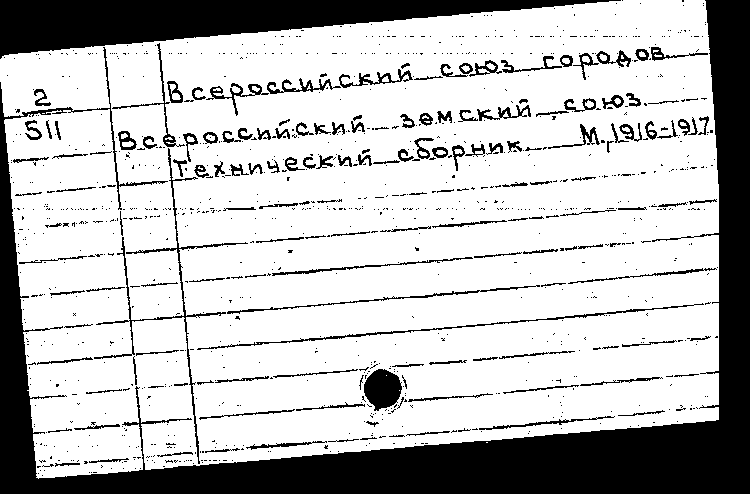 Всероссийский союз городов.
2
511
Всероссийский земский союз.
Технический сборник. М., 1916-1917.